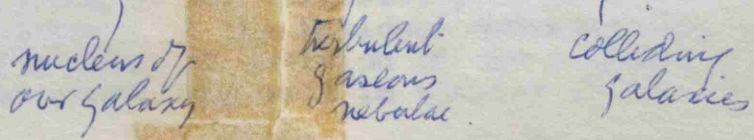 nucleus of
our galaxy
turbulent
gaseous
nebulae
colliding
galaxies